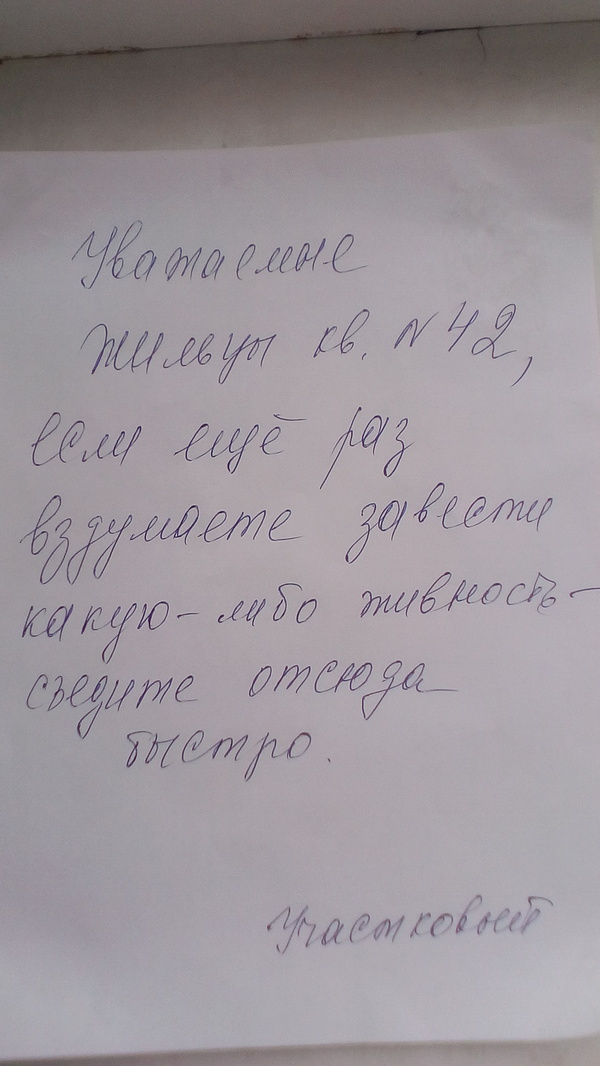 Уважаемые
жильцы кв. N 42,
если ещё раз
вздумаете завести
какую-либо живность-
съедите отсюда
быстро.
Участковый